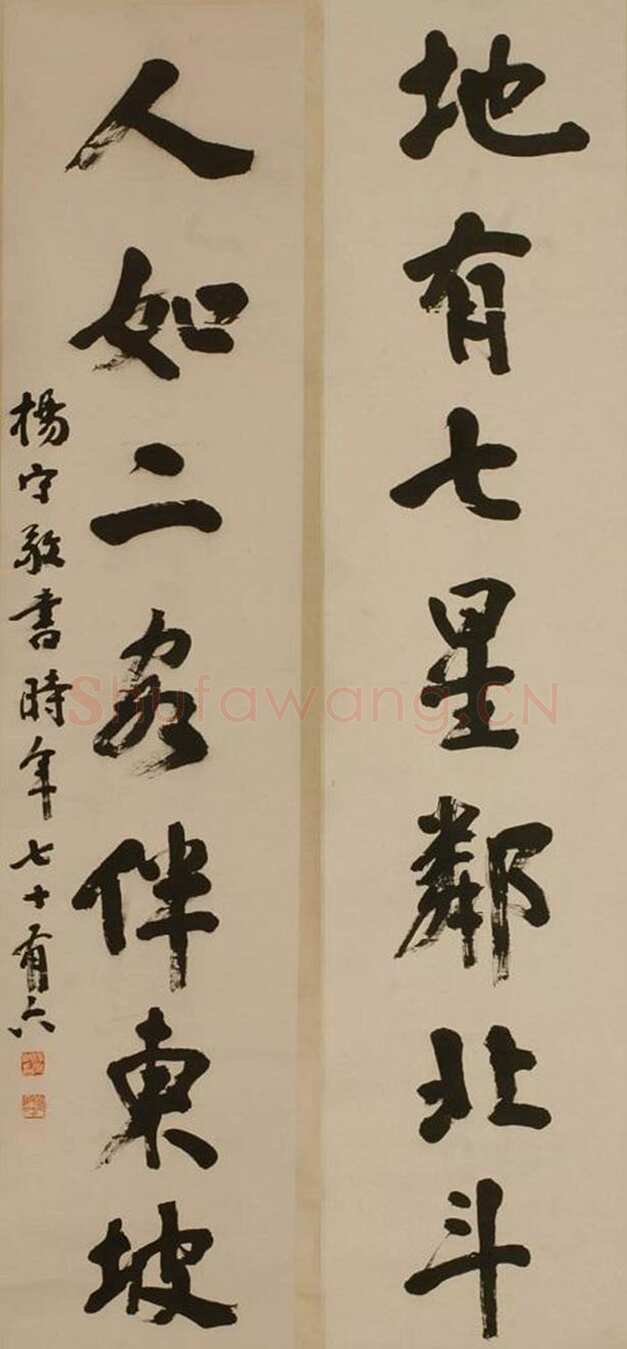 地有七星鄰北斗
人如二客伴東坡
楊守敬書時年七十有六
Shufawang.CN